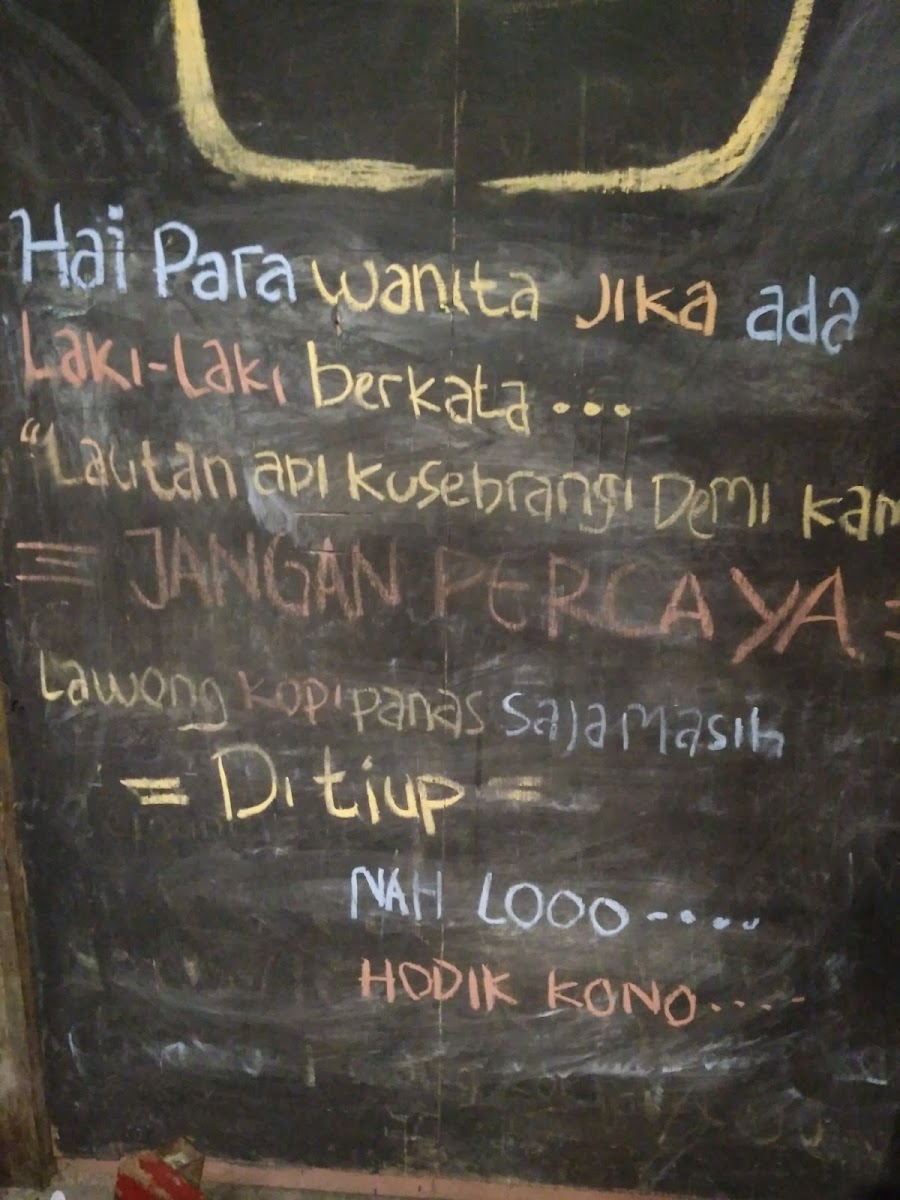 Hai Para wanita Jika ada
Laki-Laki berkata ...
"Lautan api kusebrangi Demi kam
≡ JANGAN PERCAYA =
Lawong kopi panas saja masih
= Di tiup =
NAH LOOO - ....
HODIK KONO ....-